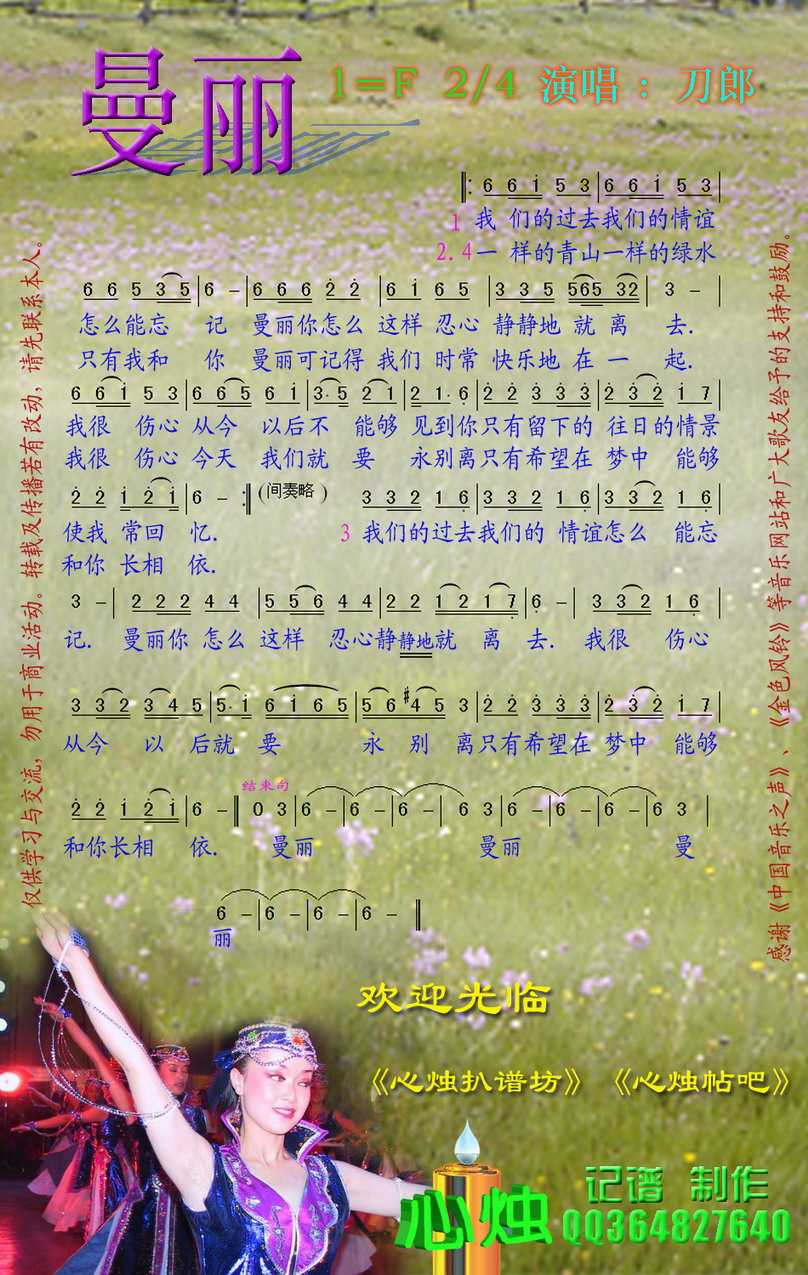 曼丽
1=F 2/4 演唱：刀郎
6 6 i 5 3 6 6 i 5 3
1 我 们的过去我们的情谊
2.4 一 样的青山一样的绿水
6 6 5 3 5 6 - 6 6 6 2 2 6 i 6 5 3 3 5 565 32 3 -
怎么能忘 记 曼丽你怎么 这样 忍心 静静地 就 离 去.
只有我和 你 曼丽可记得 我们 时常 快乐地 在 一 起.
6 6 i 5 3 6 6 5 6 i 3· 5 2 1 2 1· 6 2 2 3 3 3 2 3 2 i 7
我很 伤心 从今 以后不 能够 见到你只有留下的 往日的情景
我很 伤心 今天 我们就 要 永别离只有希望在 梦中 能够
2 2 i 2 i 6 - (间奏略) 3 3 2 1 6 3 3 2 1 6 3 3 2 1 6
使我 常回 忆. 3 我们的过去我们的 情谊怎么 能忘
和你 长相 依.
3 - 2 2 2 4 4 5 5 6 4 4 2 2 1 2 1 7 6 - 3 3 2 1 6
记. 曼丽你 怎么 这样 忍心静静地就 离 去. 我很 伤心
3 3 2 3 4 5 5· i 6 i 6 5 5 6 #4 5 3 2 2 3 3 3 2 3 2 i 7
从今 以 后就 要 永 别 离只有希望在 梦中 能够
结束句
2 2 i 2 i 6 - 0 3 6 - 6 - 6 - 6 3 6 - 6 - 6 - 6 3
和你长相 依. 曼丽 曼丽 曼
6 - 6 - 6 - 6 -
丽
仅供学习与交流，勿用于商业活动。转载及传播若有改动，请先联系本人。
感谢《中国音乐之声》、《金色风铃》等音乐网站和广大歌友给予的支持和鼓励。
欢迎光临
《心烛扒谱坊》 《心烛帖吧》
心烛
记谱 制作
QQ364827640